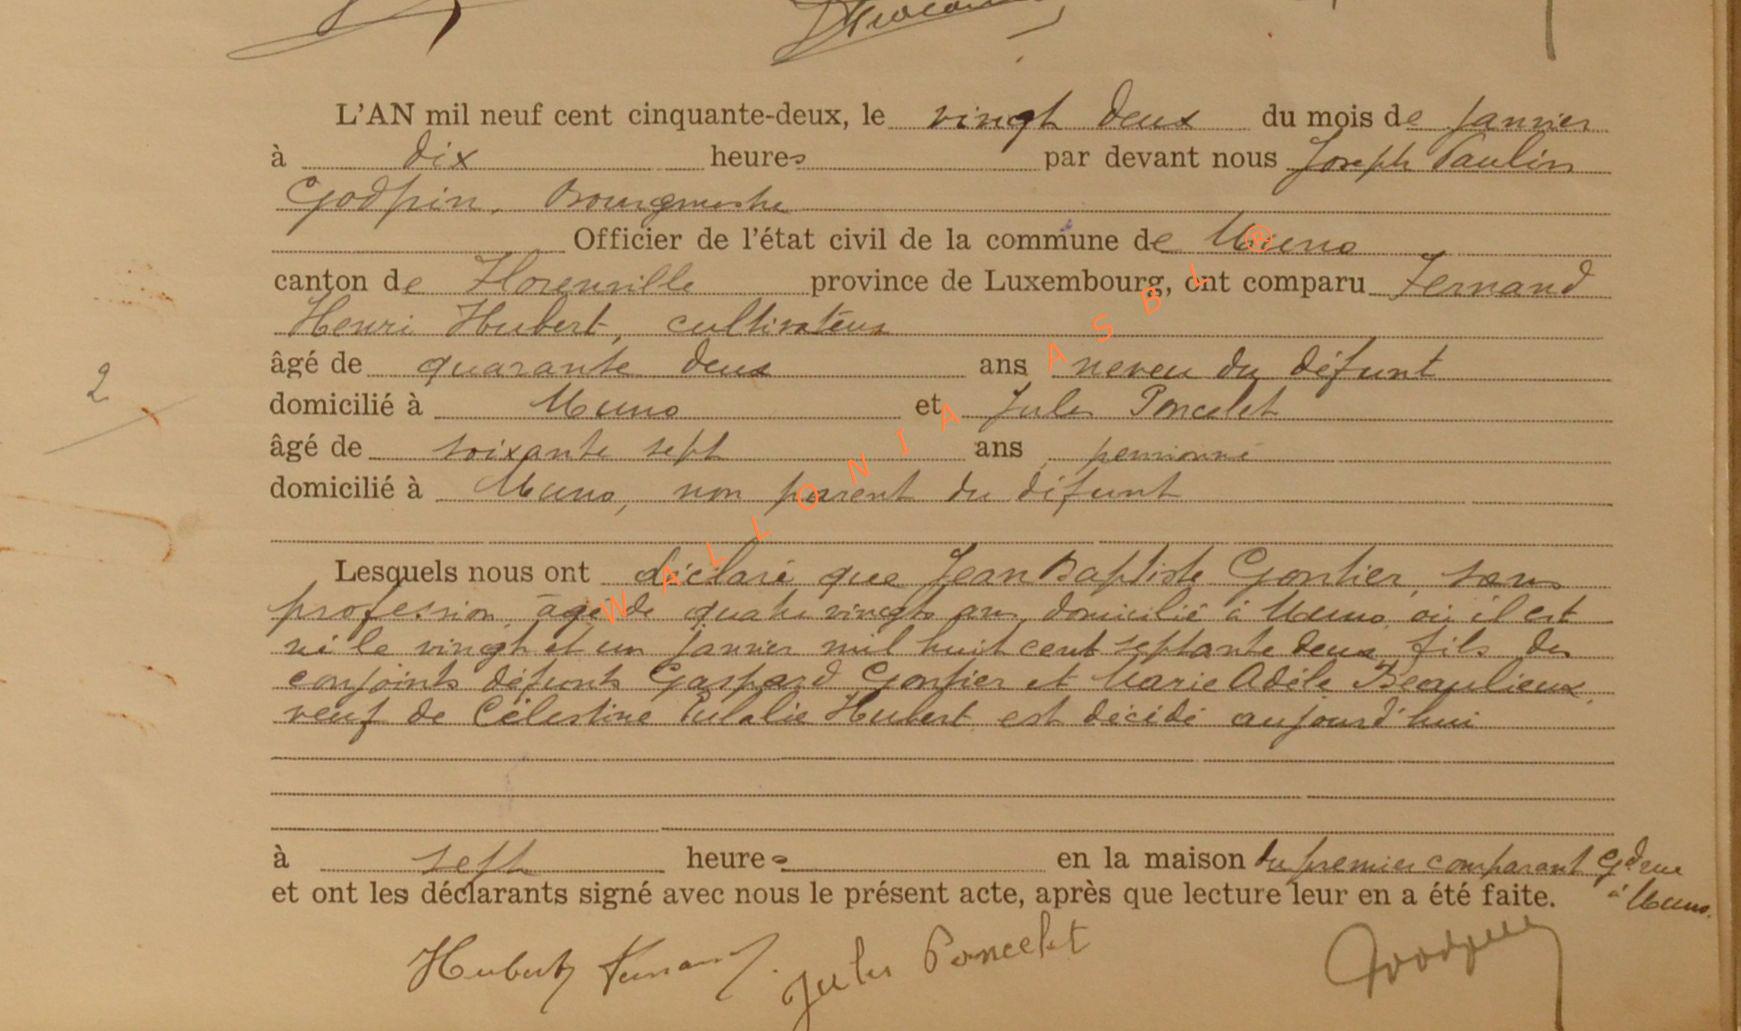 L'AN mil neuf cent cinquante-deux, le vingt deux du mois de janvier
à dix heures par devant nous Joseph Paulin
Godfrin, Bourgmestre
Officier de l'état civil de la commune de Muno
canton de Florenville province de Luxembourg, ont comparu Fernand
Henri Hubert, cultivateur
âgé de quarante deux ans neveu du défunt
domicilié à Muno et Jules Poncelet
2
âgé de soixante sept ans pensionné
domicilié à Muno, non parent du défunt
Lesquels nous ont déclaré que Jean Baptiste Gontier, sans
profession, âgé de quatre vingts ans, domicilié à Muno, où il est
né le vingt et un janvier mil huit cent septante deux, fils des
conjoints défunts Gaspard Gontier et Marie Adèle Beaulieux,
veuf de Célestine Eulalie Hubert est décédé aujourd'hui
à sept heures en la maison du premier comparant Gde rue
à Muno.
et ont les déclarants signé avec nous le présent acte, après que lecture leur en a été faite.
Hubert Fernand Jules Poncelet
WALLONIA ASBL ®